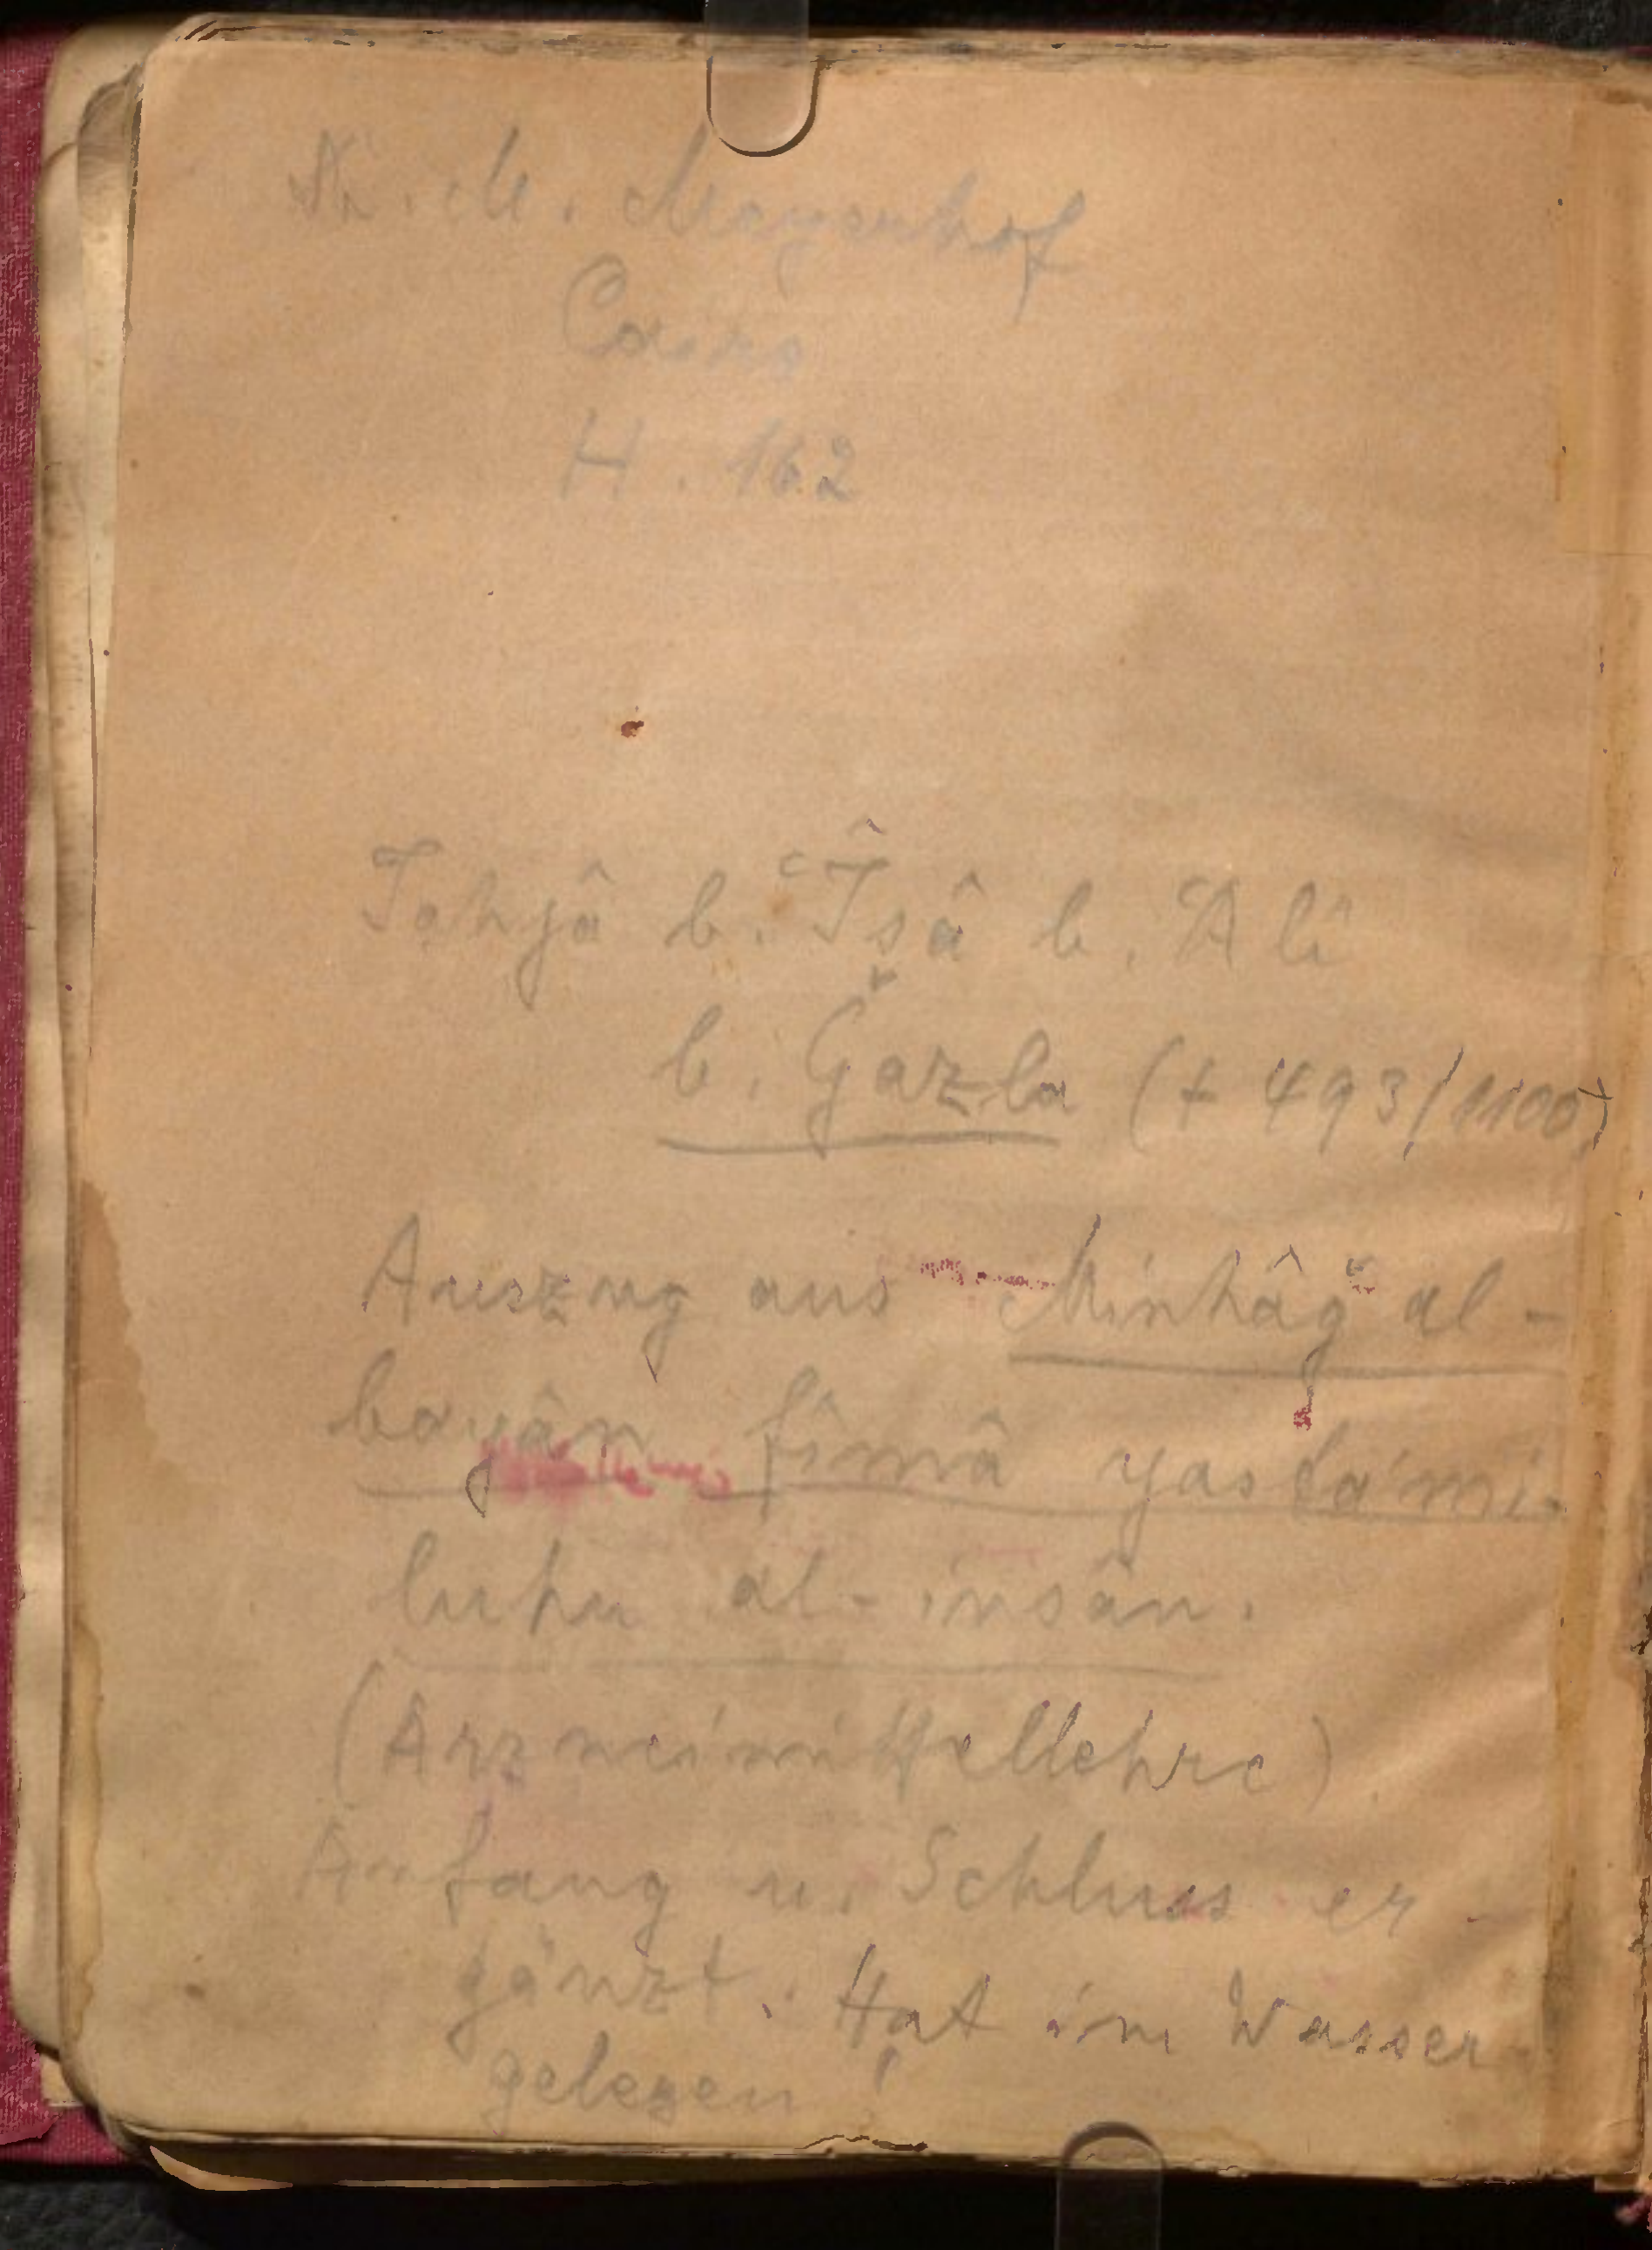 Dr. M. Meyerhof
Cairo
H. 162
Jahjâ b. ʿÎsâ b. ʿAlî
b. Ǧazla († 493/1100)
Auszug aus Minhâǧ al-
bayân fîmâ yasta'mi-
luhu al-insân.
(Arzneimittellehre)
Anfang u. Schluss er-
gänzt. Hat im Wasser
gelegen!